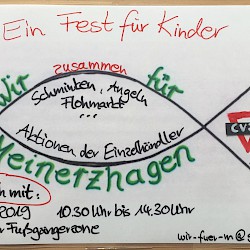 Ein Fest für Kinder
zusammen
wir für
Schminken, Angeln
Flohmarkt
...
Aktionen der Einzelhändler
Meinerzhagen
mit:
2019 10.30 Uhr bis 14.30 Uhr
Fußgängerzone
wir-fuer-m@